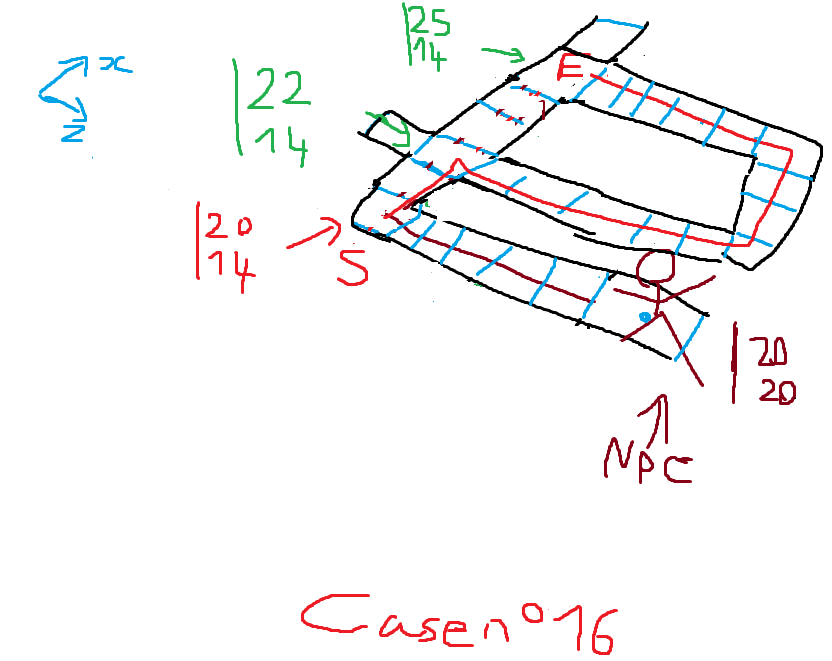 25
14
E
x
z
22
14
20
14
S
20
20
NPC
Case n°16